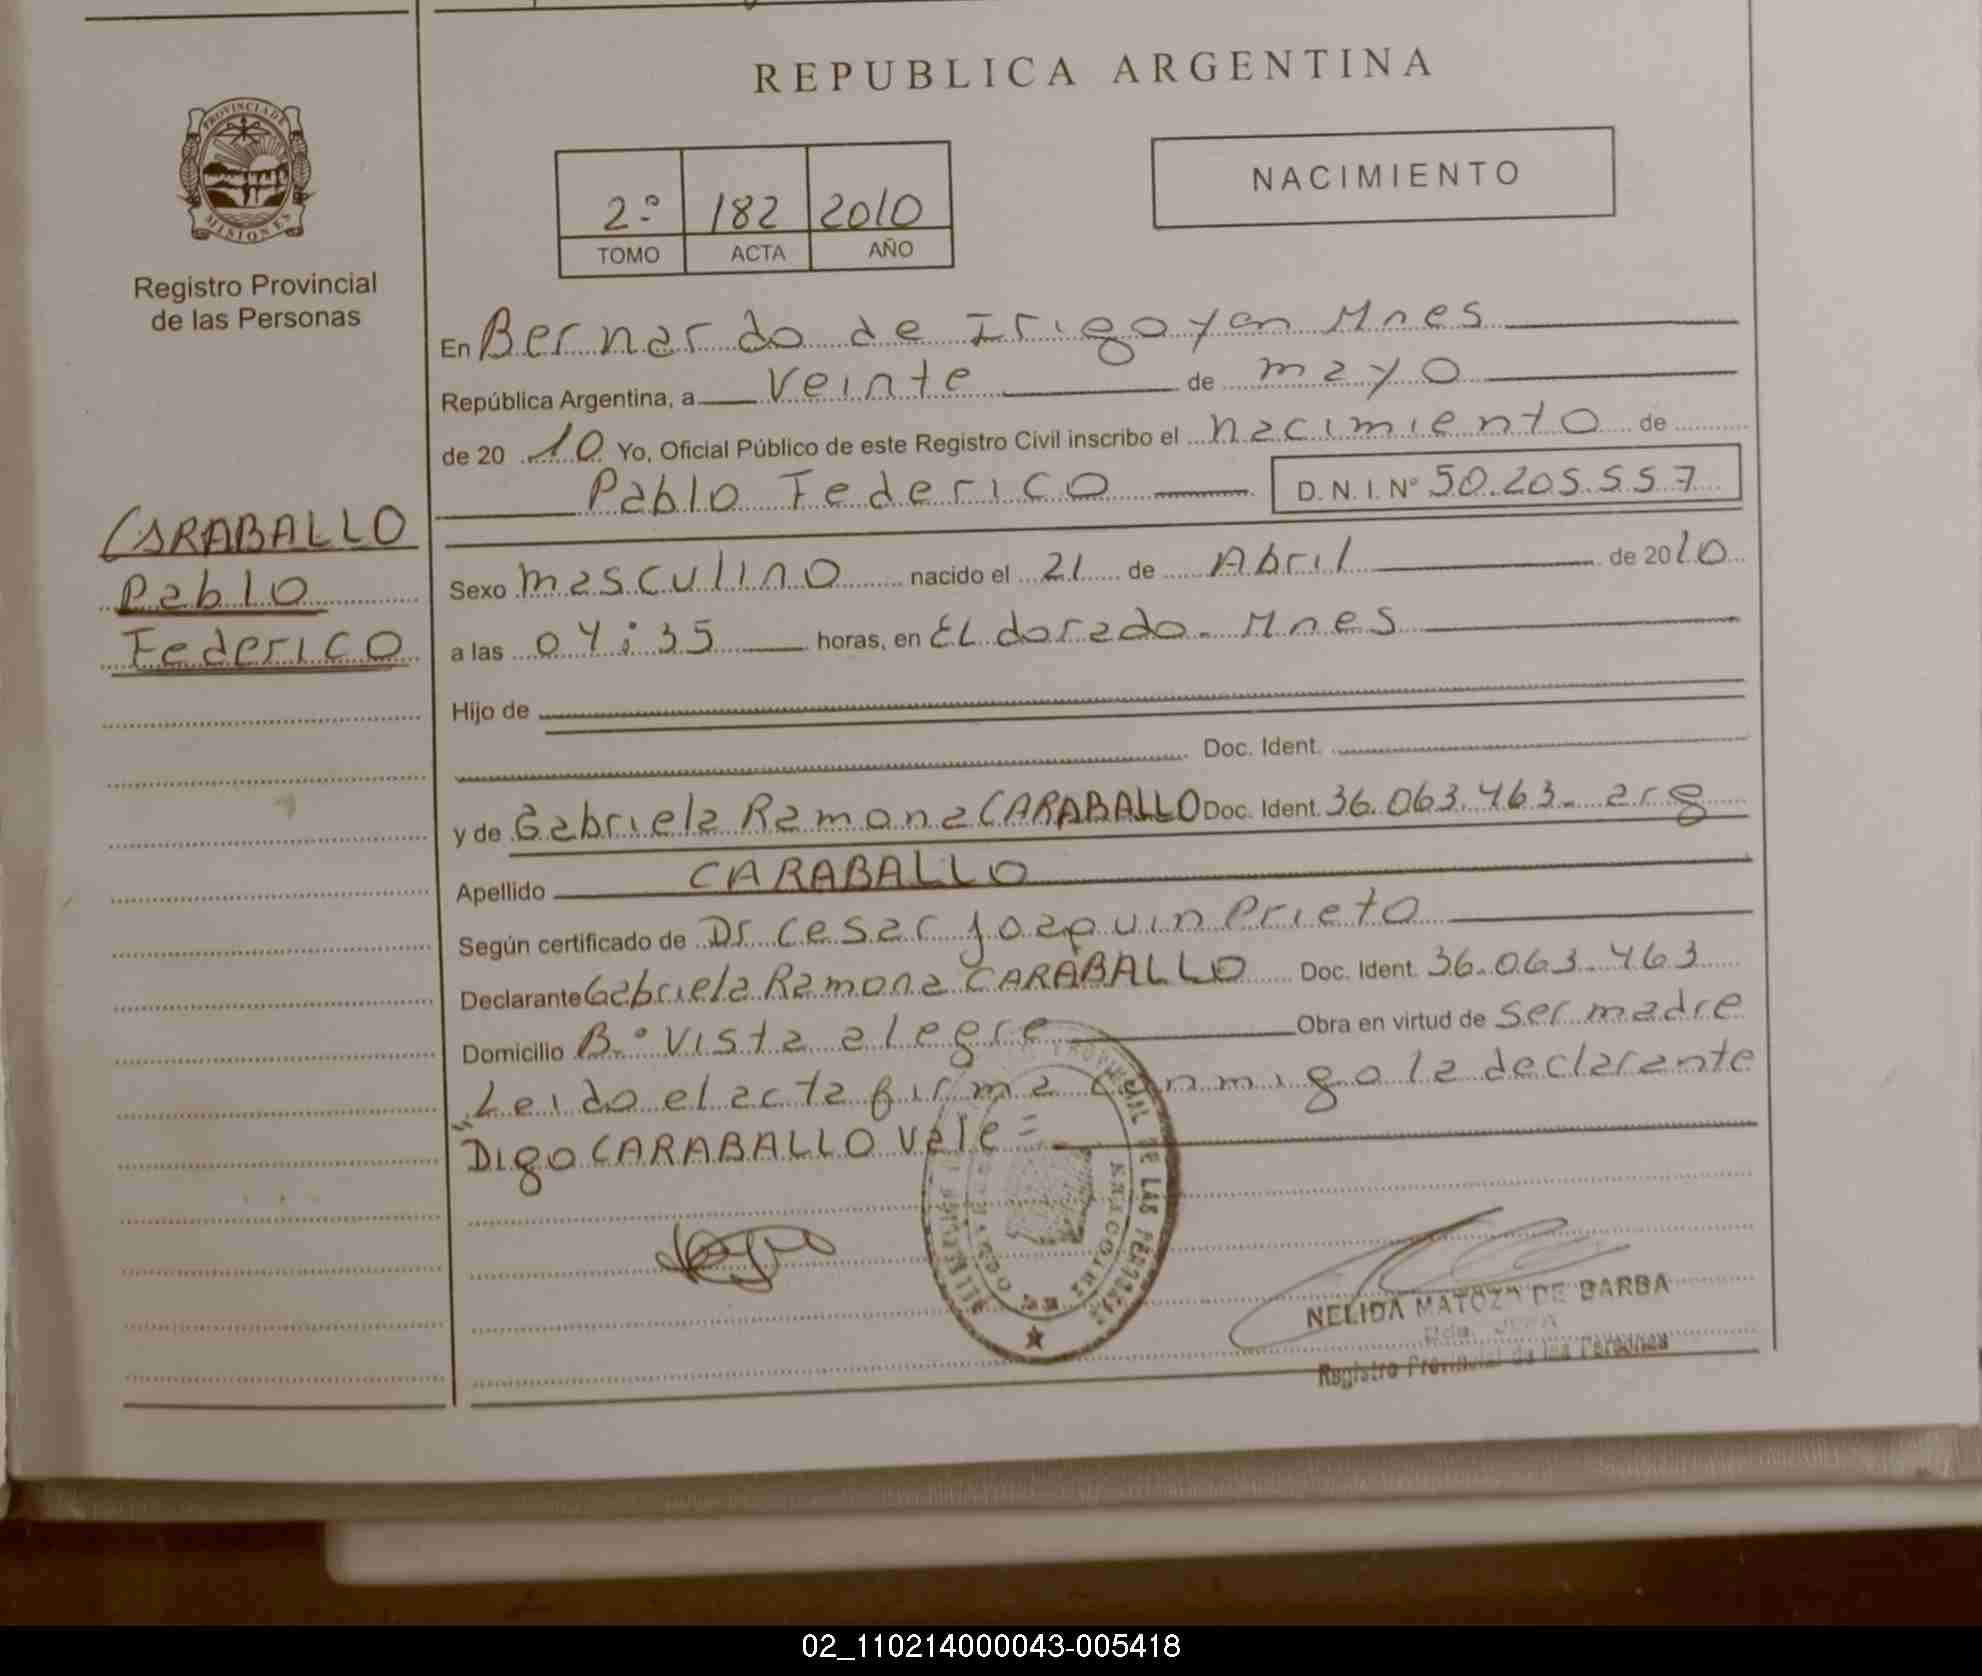 REPUBLICA ARGENTINA
PROVINCIA DE
MISIONES
Registro Provincial
de las Personas
2º 182 2010
TOMO ACTA AÑO
NACIMIENTO
En Bernardo de Irigoyen Mnes
República Argentina, a veinte de mayo
de 2010 Yo, Oficial Público de este Registro Civil inscribo el nacimiento de
Pablo Federico D.N.I. Nº 50.205.557
CARABALLO
Pablo
Federico
Sexo masculino nacido el 21 de Abril de 2010
a las 04:35 horas, en ELdorado. Mnes
Hijo de
Doc. Ident.
y de Gabriela Ramona CARABALLO Doc. Ident. 36.063.463. arg
Apellido CARABALLO
Según certificado de Dr Cesar Joaquin Prieto
Declarante Gabriela Ramona CARABALLO Doc. Ident. 36.063.463
Domicilio B.º Vista alegre Obra en virtud de ser madre
Leido el acta firma conmigo la declarante
Digo CARABALLO vale =
PROVINCIAL DE LAS PERSONAS
NELIDA MATOZO DE BARBA
Registro Provincial de las Personas
02_110214000043-005418